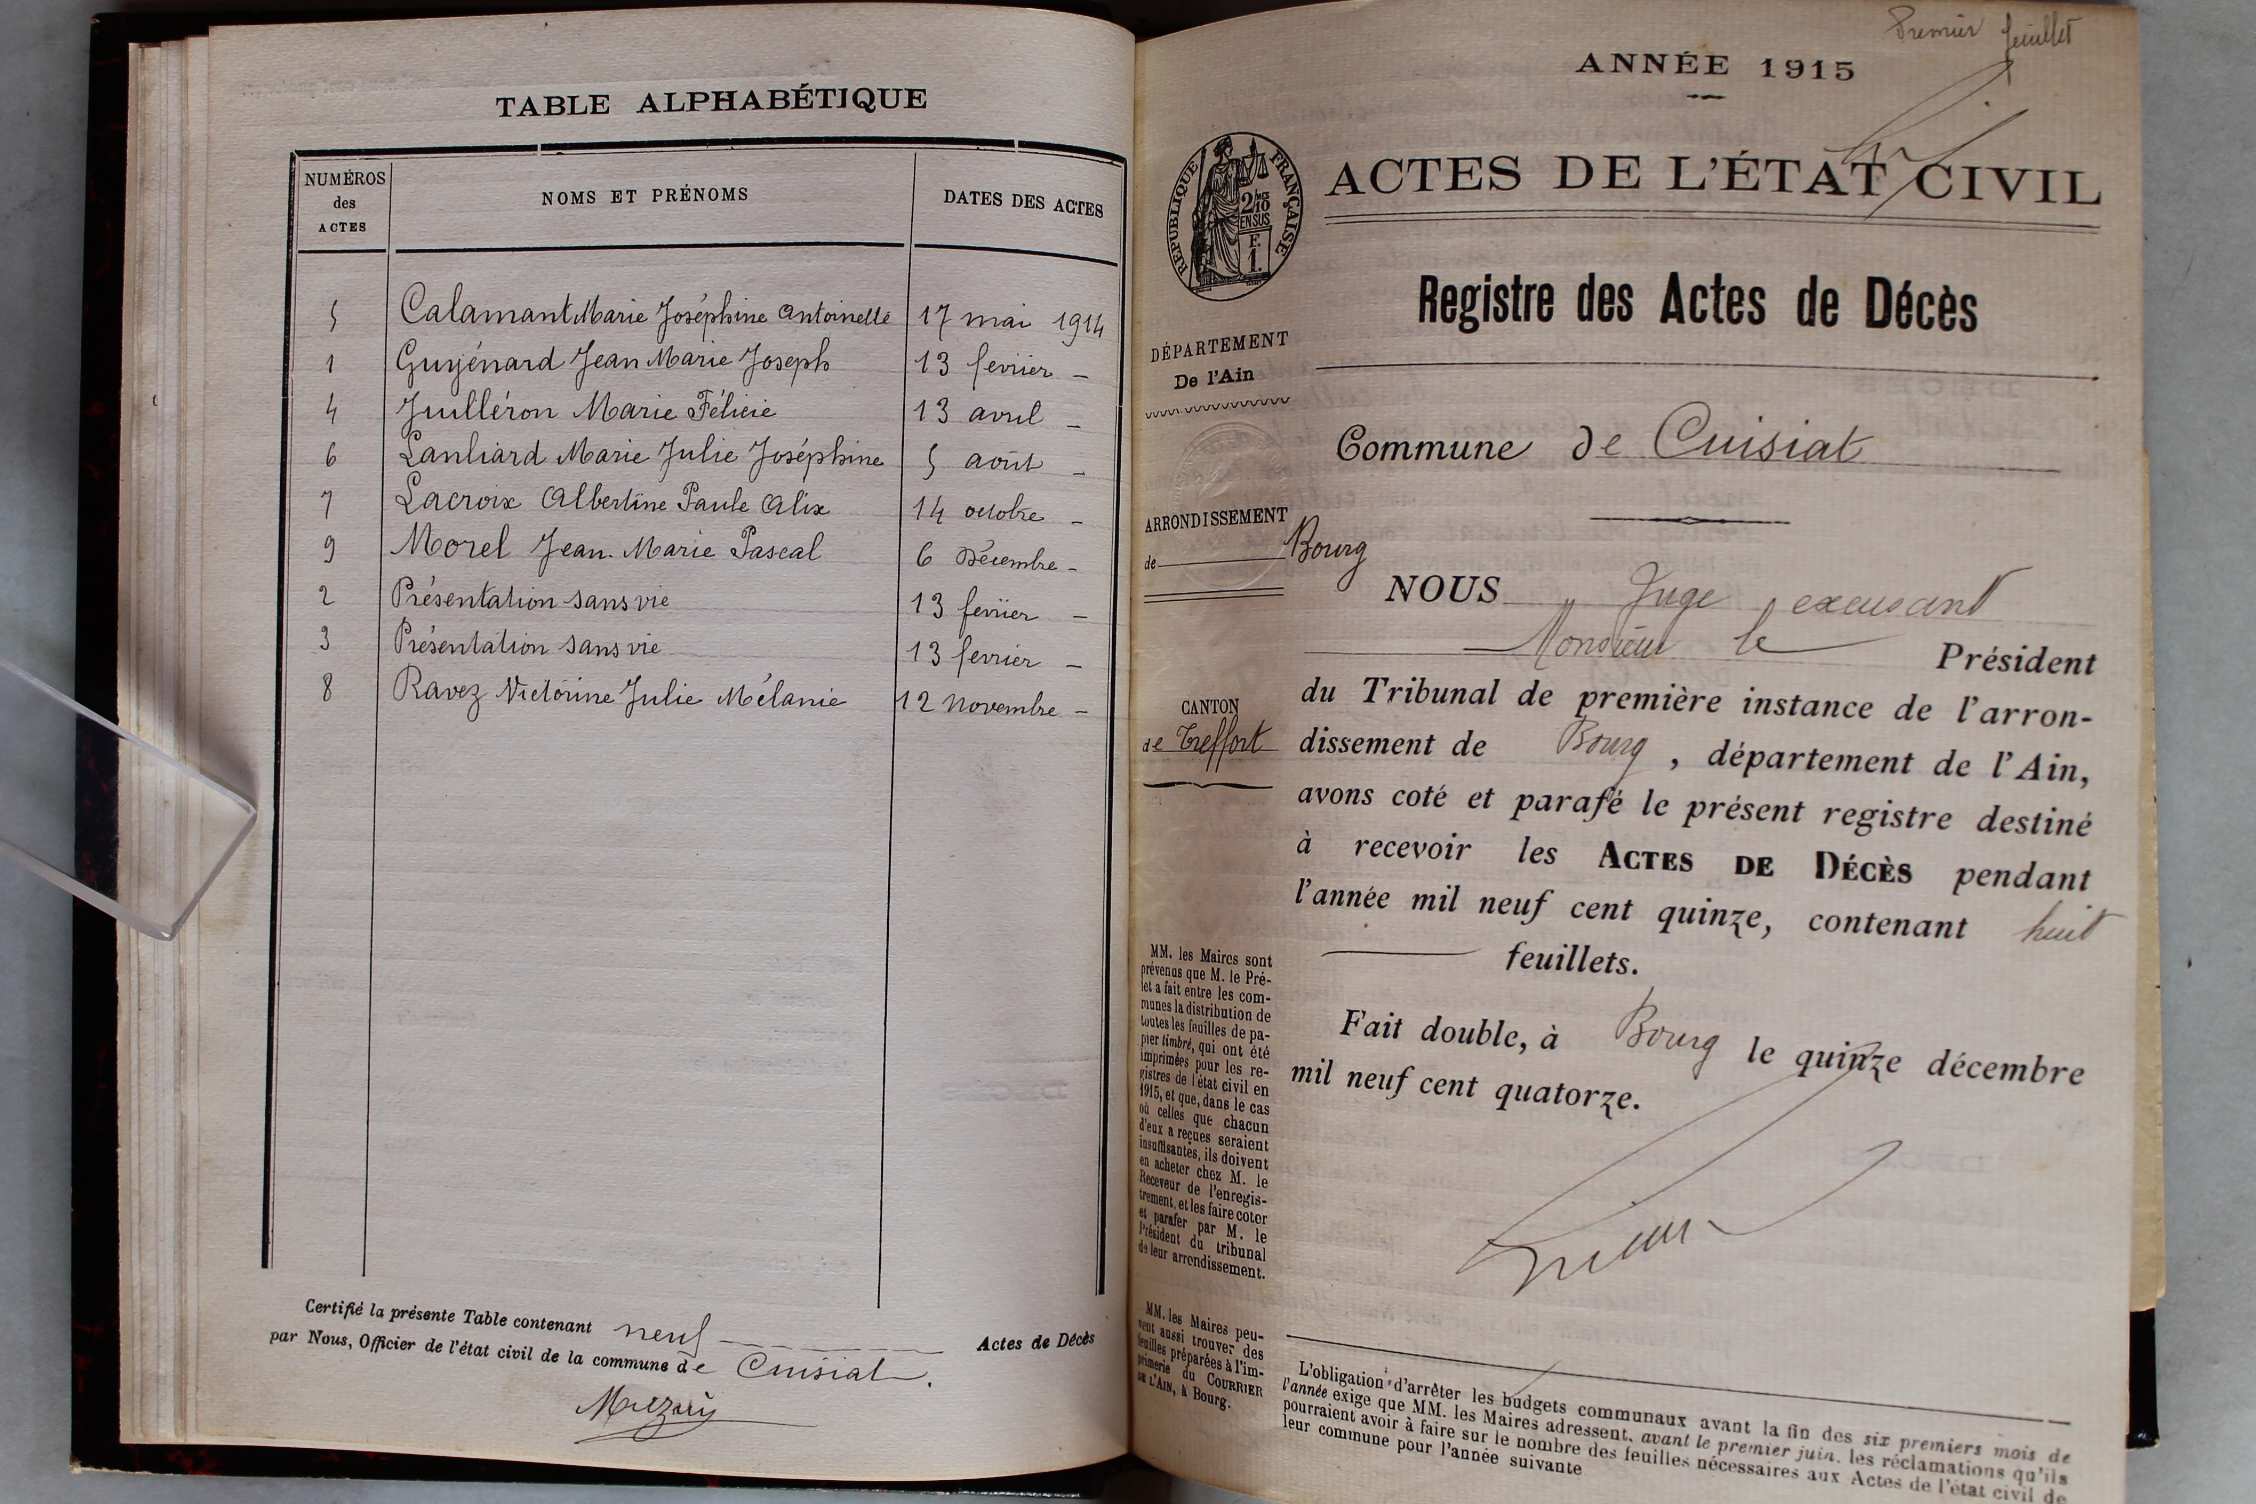 TABLE ALPHABÉTIQUE
NUMÉROS des ACTES NOMS ET PRÉNOMS DATES DES ACTES
5 Calamant Marie Joséphine Antoinette 17 mai 1914
1 Guyénard Jean Marie Joseph 13 février -
4 Juilléron Marie Félicie 13 avril -
6 Lanliard Marie Julie Joséphine 5 août -
7 Lacroix Albertine Paule Alix 14 octobre -
9 Morel Jean-Marie Pascal 6 Décembre -
2 Présentation sans vie 13 février -
3 Présentation sans vie 13 fevrier -
8 Ravez Victorine Julie Mélanie 12 novembre -
Certifié la présente Table contenant neuf Actes de Décès
par Nous, Officier de l'état civil de la commune de Cuisiat.
Premier feuillet
ANNÉE 1915
ACTES DE L'ÉTAT CIVIL
RÉPUBLIQUE FRANÇAISE
2/10
EN SUS
F.
1.
Registre des Actes de Décès
DÉPARTEMENT
De l'Ain
Commune de Cuisiat
ARRONDISSEMENT
de Bourg
CANTON
de Treffort
NOUS Juge excusant
Monsieur le Président
du Tribunal de première instance de l'arron-
dissement de Bourg, département de l'Ain,
avons coté et parafé le présent registre destiné
à recevoir les ACTES DE DÉCÈS pendant
l'année mil neuf cent quinze, contenant huit
feuillets.
Fait double, à Bourg le quinze décembre
mil neuf cent quatorze.
MM. les Maires sont
prévenus que M. le Pré-
fet a fait entre les com-
munes la distribution de
toutes les feuilles de pa-
pier timbré, qui ont été
imprimées pour les re-
gistres de l'état civil en
1915, et que, dans le cas
où celles que chacun
d'eux a reçues seraient
insuffisantes, ils doivent
en acheter chez M. le
Receveur de l'enregis-
trement, et les faire coter
et parafer par M. le
Président du tribunal
de leur arrondissement.
MM. les Maires peu-
vent aussi trouver des
feuilles préparées à l'im-
primerie du COURRIER
DE L'AIN, à Bourg.
L'obligation d'arrêter les budgets communaux avant la fin des six premiers mois de
l'année exige que MM. les Maires adressent, avant le premier juin, les réclamations qu'ils
pourraient avoir à faire sur le nombre des feuilles nécessaires aux Actes de l'état civil de
leur commune pour l'année suivante